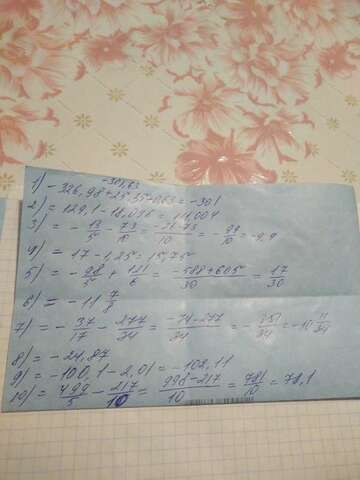 -301,63
1) -326,98+25,35+0,63 = -301
2) = 129,1 - 18,096 = 111,004
3) = - 13/5 - 73/10 = -26-73/10 = - 99/10 = -9,9
4) = 17 - 1,25 = 15,75
5) = - 98/5 + 121/6 = -588+605/30 = 17/30
6) = -11 7/8
7) = - 37/17 - 277/34 = -74-277/34 = - 351/34 = -10 11/34
8) = -24,87
9) = -100,1 - 2,01 = -102,11
10) = 499/5 - 217/10 = 998-217/10 = 781/10 = 78,1